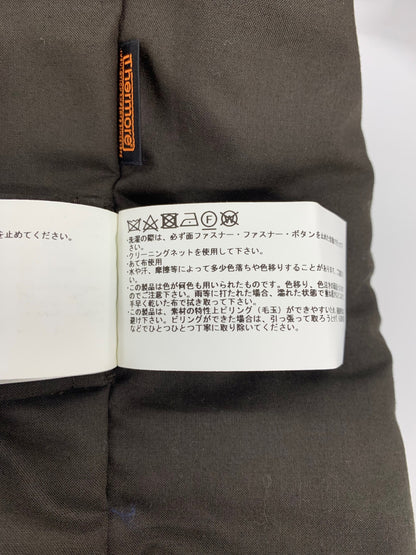 Thermore
を止めてください。
F W
・洗濯の際は、必ず面ファスナー・ファスナー・ボタンを止めた状態で
さい。
・クリーニングネットを使用して下さい。
・あて布使用
・水や汗、摩擦等によって多少色落ちや色移りすることがあります。
・この製品は色が何色も用いられたものです。色移り、色泣き
のでご注意下さい。雨等に打たれた場合、濡れた状態で重ね
手早く乾いた布で拭き取って下さい。
・この製品は、素材の特性上ピリング（毛玉）ができやすいため、
避け下さい。ピリングができた場合は、引っ張って取ろうとせ
などでひとつひとつ丁寧に取り除いてください。